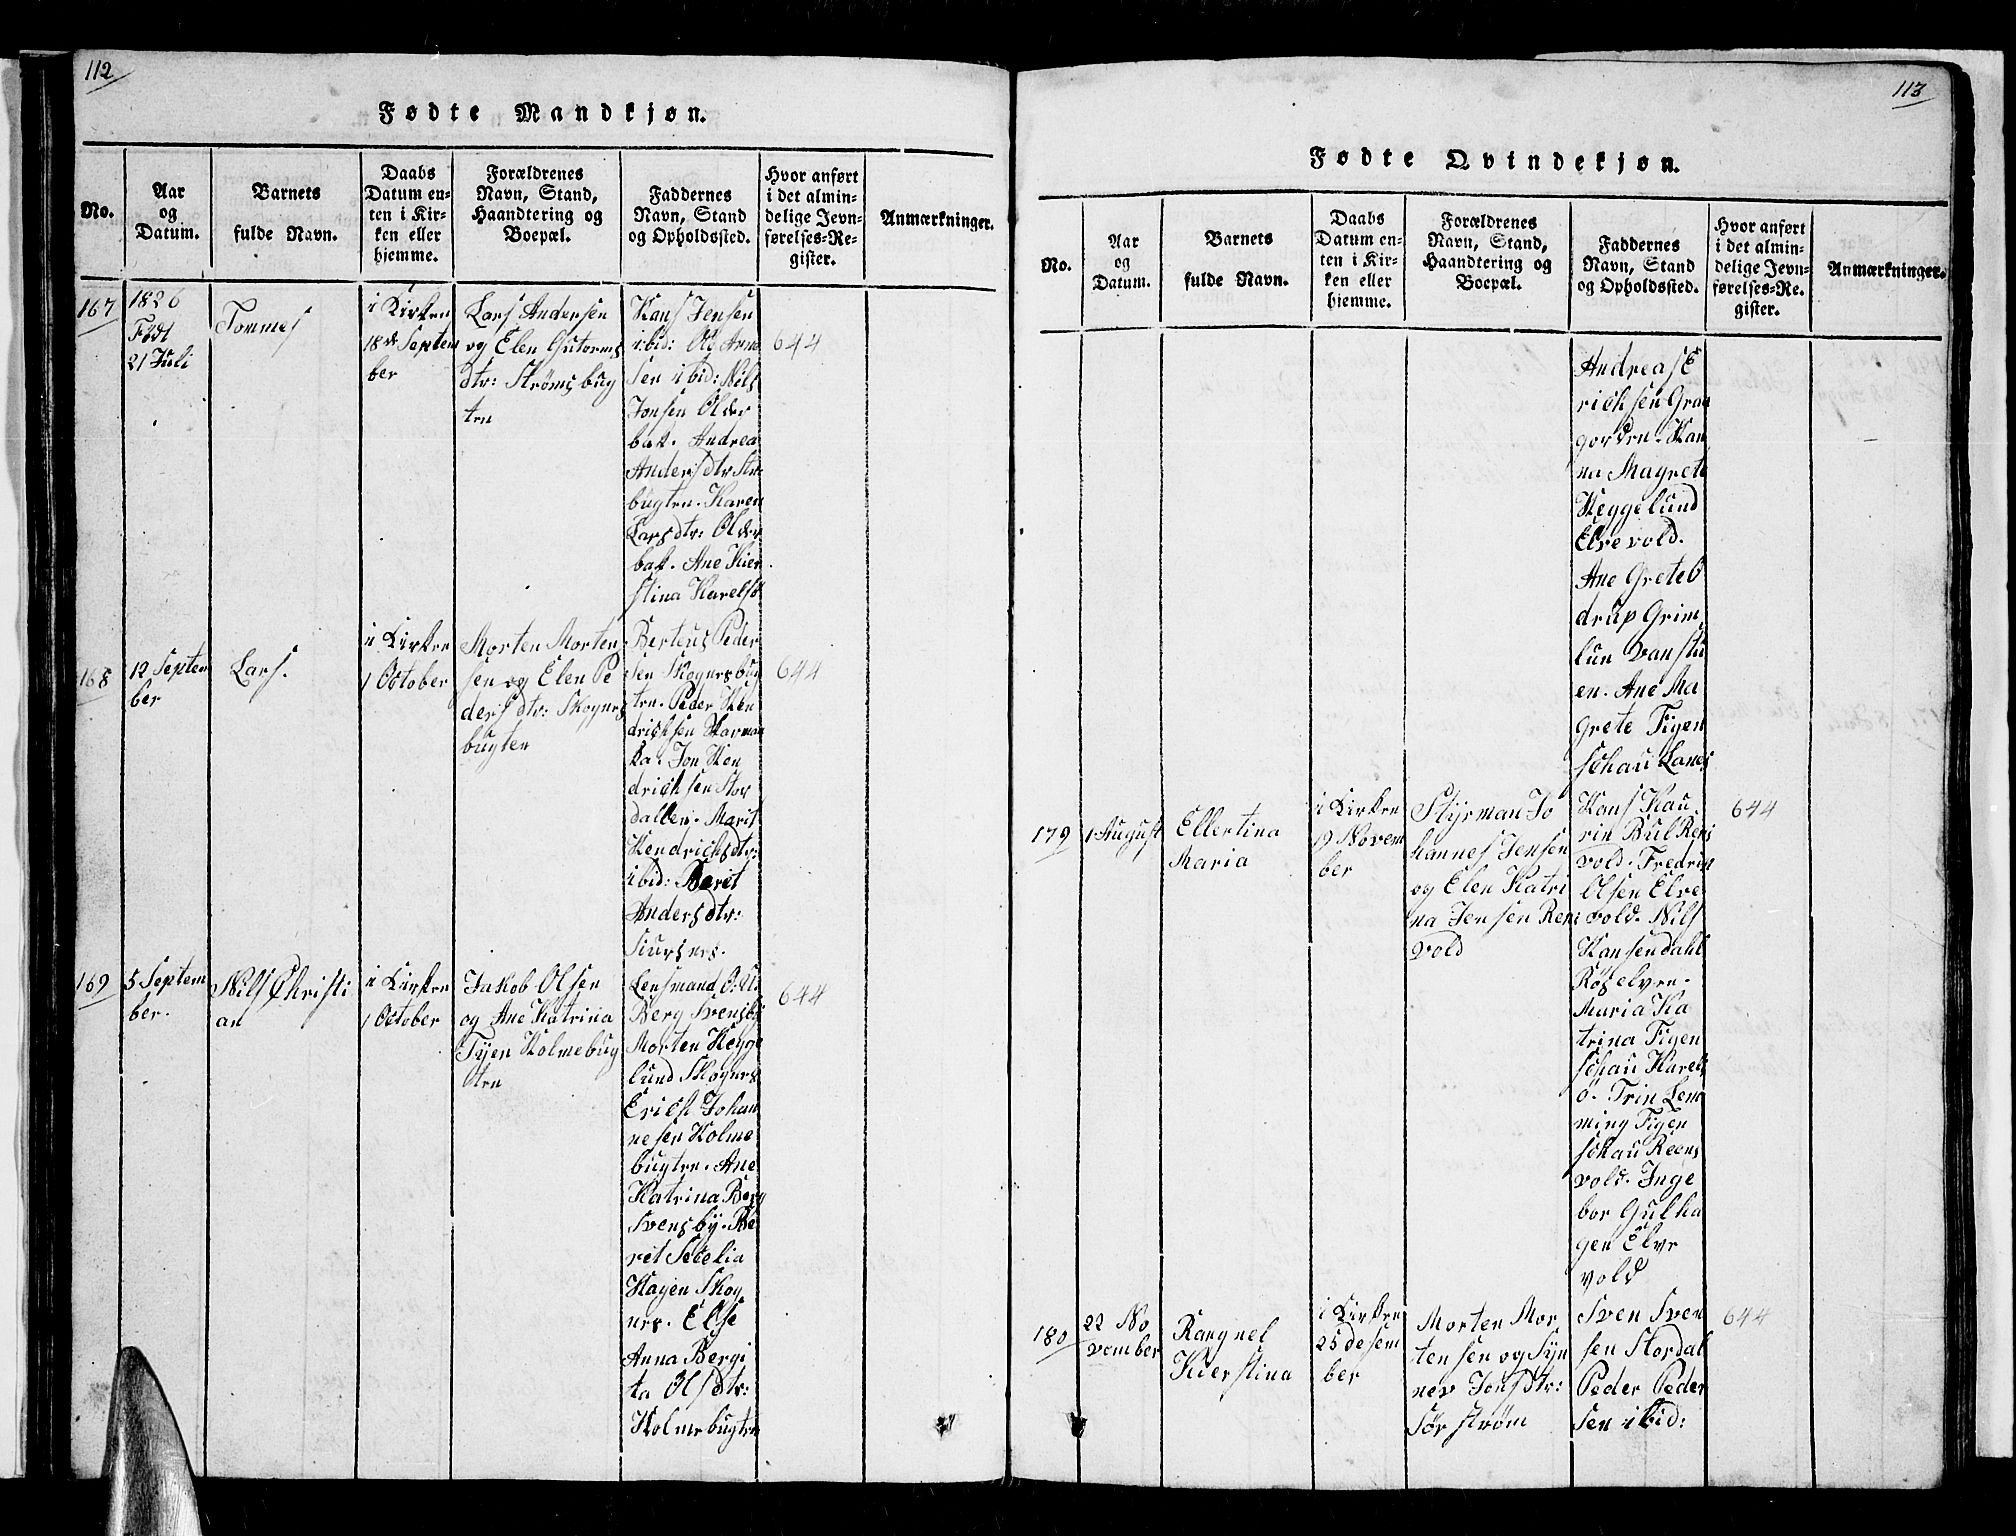 112
Fødte Mandkjøn.
No.
Aar
og
Datum.
Barnets
fulde Navn.
Daabs
Datum en-
ten i Kir-
ken eller
hjemme.
Forældrenes
Navn, Stand,
Haandtering og
Boepæl.
Faddernes
Navn, Stand
og Opholdssted.
Hvor anført
i det almin-
delige Jevn-
førelses-Re-
gister.
Anmærkninger.
167
1826
Født
21 Juli
Tommes
i Kirken
18de Septem
ber
Lars Andersen
og Elen Gutorms
dtr: Strømsbug
ten
Hans Jensen
ibid: Ole Arne
sen ibid: Nils
Jonsen Older
bak. Andrea
Andersdtr Str:
bugten. Karen
Larsdtr: Older
bak. Ane Kier
stina Karelsö
644
168
12 Septem
ber
Lars.
i Kirken
1 October
Morten Morten
sen og Elen Pe
dersdtr: Skogners
bugten
Berteus Peder
sen Skognersbug
ten. Peder Hen
dricksen Marman
ka. Jon Hen
dricksen Stor
dallen. Marit
Hendricksdtr:
ibid: Berit
Andersdtr:
Siursnes.
644
169
5 Septem
ber.
Nils Christi
an
i Kirken
1 October
Jakob Olsen
og Ane Katrina
Tyen Holmebug
ten
Lensmand
Berg Svensby
Morten Hegge
lund Skogners
Erich Johan
nesen Holme
bugten. Ane
Katrina Berg
Svensby. Be
ret Secelia
Hagen Skog
nes. Else
Anna Bergi
ta Olsdtr:
Holmebugten
644
113
Fødte Qvindekjøn.
No.
Aar
og
Datum.
Barnets
fulde Navn.
Daabs
Datum en-
ten i Kir-
ken eller
hjemme.
Forældrenes
Navn, Stand,
Haandtering og
Boepæl.
Faddernes
Navn, Stand
og Opholdssted.
Hvor anført
i det almin-
delige Jevn-
førelses-Re-
gister.
Anmærkninger.
Andreas E
ricksen Graa
gorden. Han
na Magrete
Heggelund
Elvevold.
Ane Grete B
drup Grim
lun Vanstu
en. Ane Ma
Grete Figen
schau Lanes
179
1 August
Ellertina
Maria
i Kirken
19 Novem
ber
Styrman Jo
hannes Jensen
og Elen Katri
na Jensen Ren
vold
Hans Kau
rin Bul Rens
vold. Fredrik
Olsen Elve
vold. Nils
Hansen dahl
Røselven.
Maria Ka
trina Figen
schau Karels
ö. Trin Lem
ming Figen
schau Reens
vold. Inge
bor Gulha
gen Elve
vold
644
180
22 No
vember
Rangnel
Kierstina
i Kirken
25 desem
ber
Morten Mor
tensen og Syn
nev Jonsdtr:
Sørstrøm
Sven Sven
sen Stordal
Peder Peder
sen ibid:
644